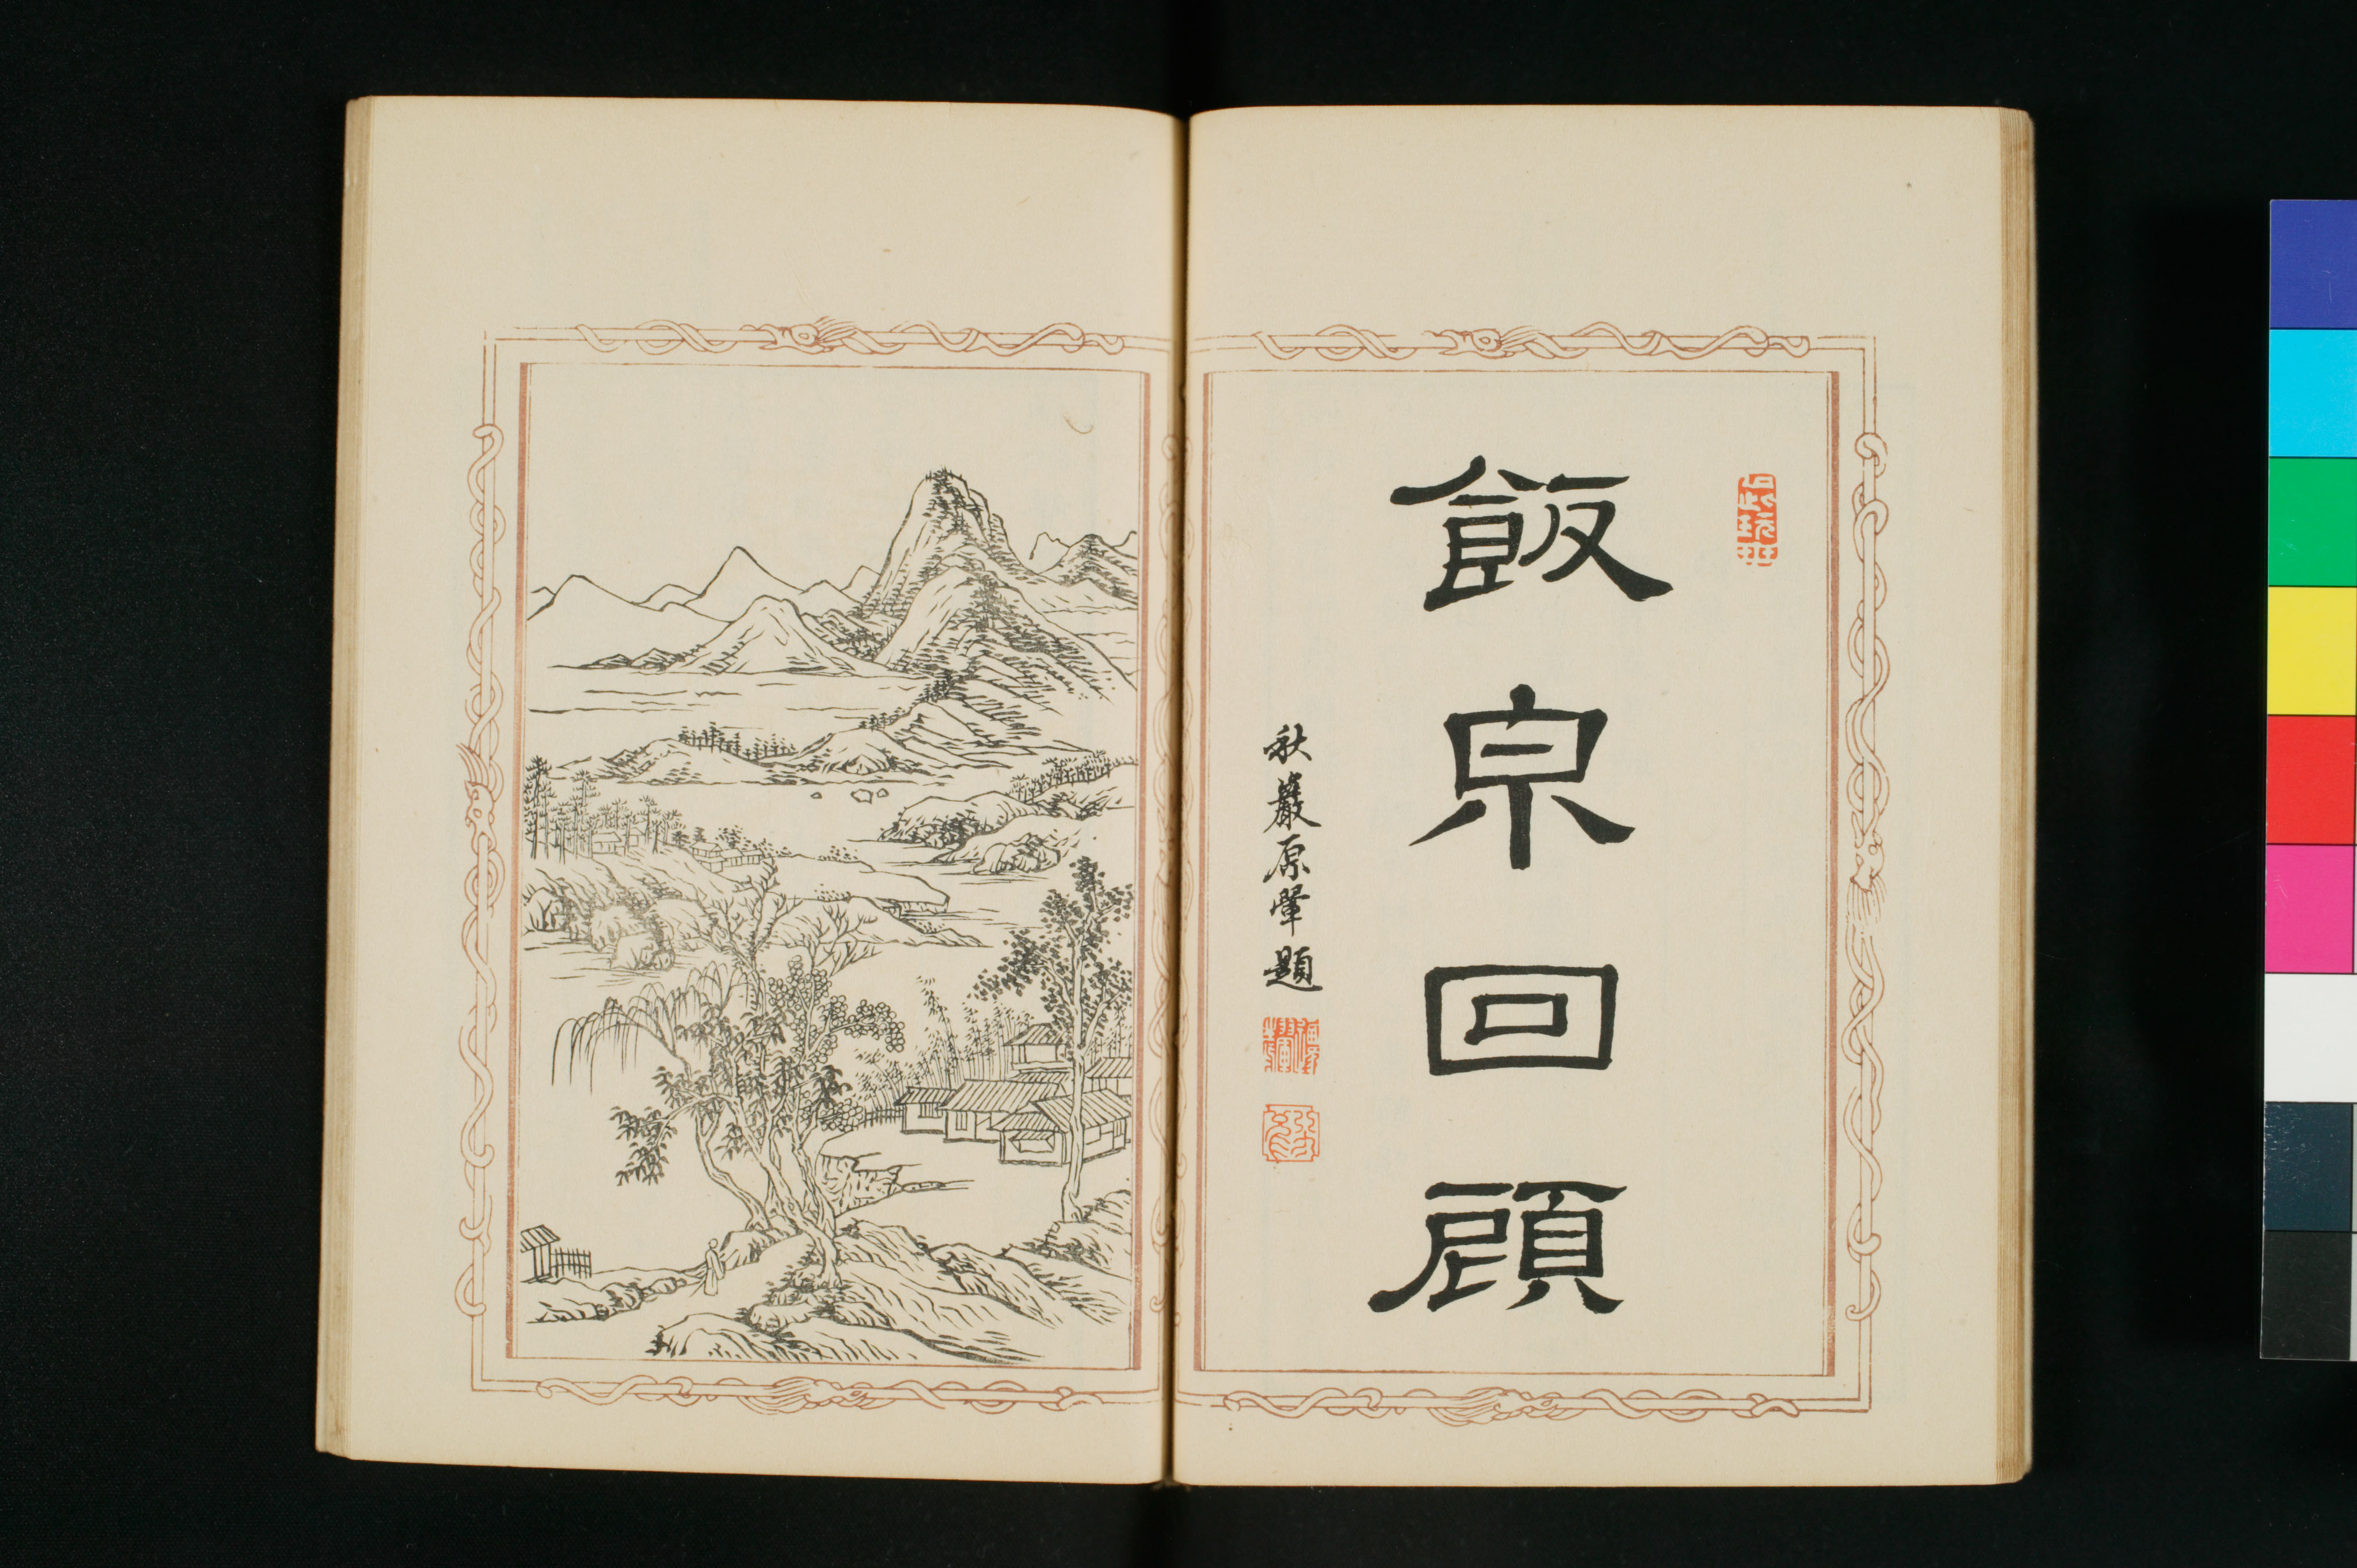 飯泉回顧
秋巖原翬題